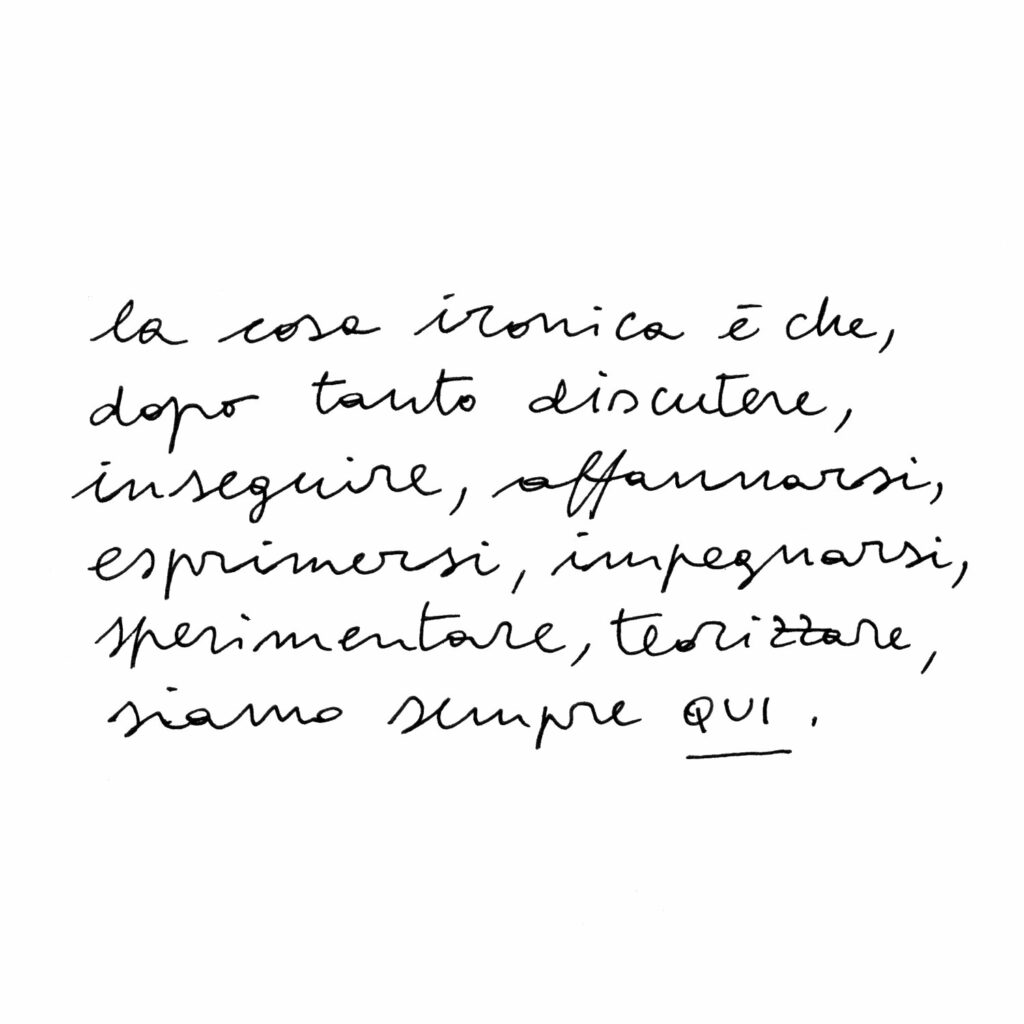 la cosa ironica è che,
dopo tanto discutere,
inseguire, affannarsi,
esprimersi, impegnarsi,
sperimentare, teorizzare,
siamo sempre QUI.